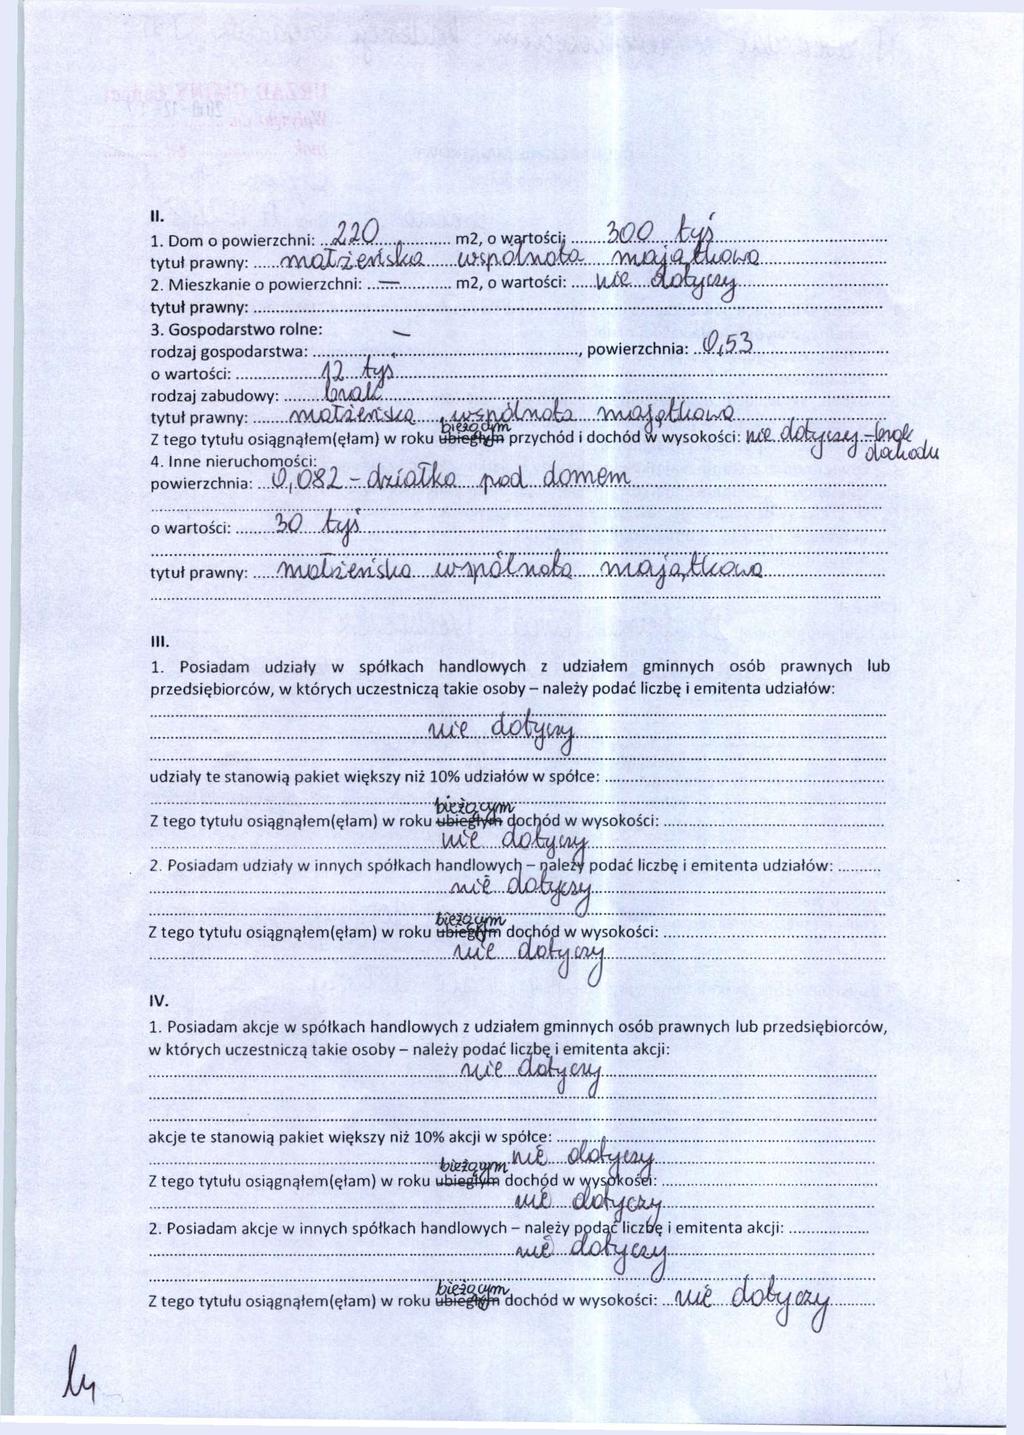 II.
1. Dom o powierzchni: ...220............. m2, o wartości: .......300....tyś...............................
tytuł prawny: ......małżeńska......wspólnota......majątkowa......................
2. Mieszkanie o powierzchni: ...—.......... m2, o wartości: .....nie....dotyczy..........................
tytuł prawny: ..............................................................................................................
3. Gospodarstwo rolne: —
rodzaj gospodarstwa: ......................................................, powierzchnia: ..0,53..........................
o wartości: ..................12...tyś..................................................................................
rodzaj zabudowy: ........brak..................................................................................
tytuł prawny: .......małżeńska....wspólnota....majątkowa..............................
bieżącym
Z tego tytułu osiągnąłem(ęłam) w roku ubiegłym przychód i dochód w wysokości: nie dotyczy - brak
dochodu
4. Inne nieruchomości:
powierzchnia: ...0,082 - działka....pod....domem..................................................
..............................................................................................................
o wartości: .......30...tyś..................................................................................
..............................................................................................................
tytuł prawny: .....małżeńska....wspólnota....majątkowa........................
..............................................................................................................
III.
1. Posiadam udziały w spółkach handlowych z udziałem gminnych osób prawnych lub
przedsiębiorców, w których uczestniczą takie osoby – należy podać liczbę i emitenta udziałów:
..............................................................................................................
..........................................nie...dotyczy..................................................
..............................................................................................................
udziały te stanowią pakiet większy niż 10% udziałów w spółce: ..........................................
..............................................................................................................
bieżącym
Z tego tytułu osiągnąłem(ęłam) w roku ubiegłym dochód w wysokości: .................................
............................................nie...dotyczy..................................................
2. Posiadam udziały w innych spółkach handlowych – należy podać liczbę i emitenta udziałów: ...........
..............................................nie...dotyczy..................................................
..............................................................................................................
bieżącym
Z tego tytułu osiągnąłem(ęłam) w roku ubiegłym dochód w wysokości: .................................
..............................................nie...dotyczy..................................................
IV.
1. Posiadam akcje w spółkach handlowych z udziałem gminnych osób prawnych lub przedsiębiorców,
w których uczestniczą takie osoby – należy podać liczbę i emitenta akcji:
................................................nie...dotyczy..................................................
..............................................................................................................
..............................................................................................................
akcje te stanowią pakiet większy niż 10% akcji w spółce: ..................................................
......................................................nie...dotyczy..................................
bieżącym
Z tego tytułu osiągnąłem(ęłam) w roku ubiegłym dochód w wysokości: .................................
......................................................nie...dotyczy..................................
2. Posiadam akcje w innych spółkach handlowych – należy podać liczbę i emitenta akcji: .................
......................................................nie...dotyczy..................................
..............................................................................................................
bieżącym
Z tego tytułu osiągnąłem(ęłam) w roku ubiegłym dochód w wysokości: ...nie...dotyczy..........